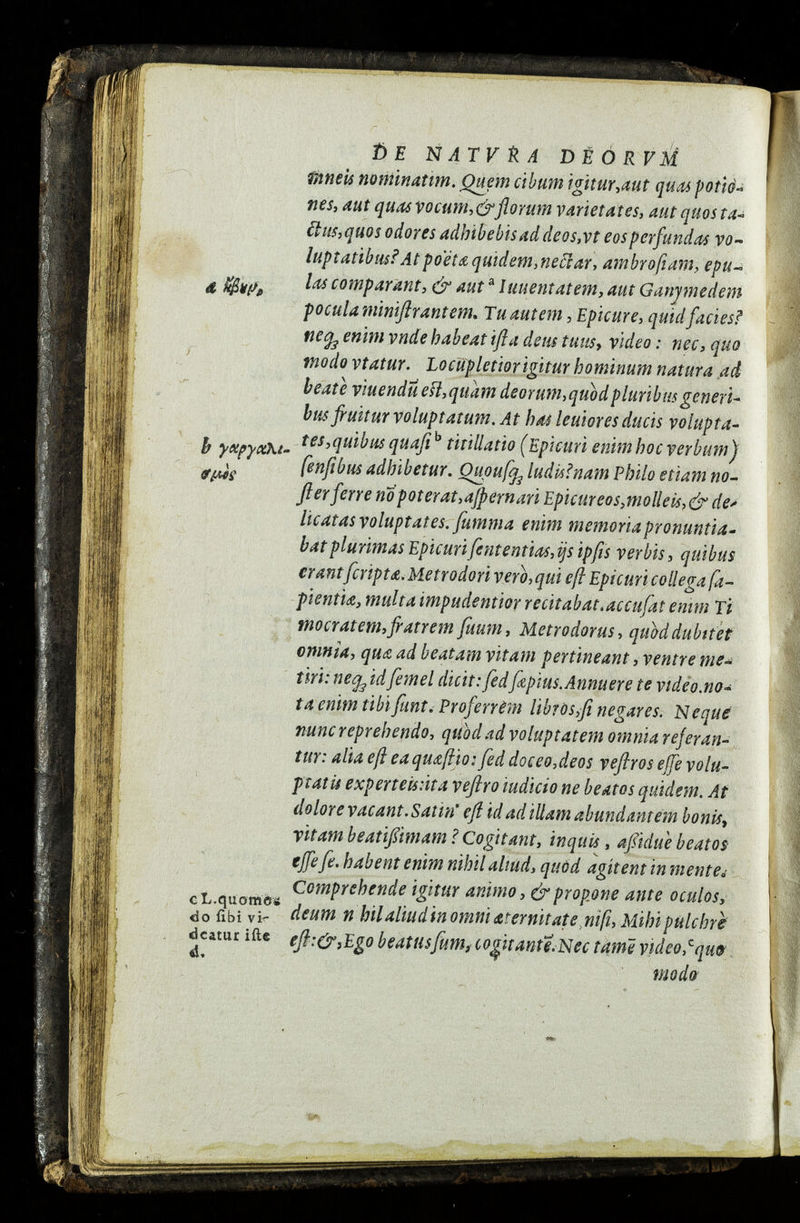 DE NATVRA DEORVM
mneis nominatim. Quem cibum igitur,aut quas potio-
nes, aut quas vocum,& florum varietates, aut quos ta-
ctus,quos odores adhibebis ad deos,vt eos perfundas vo-
luptatibus? At poëtæ quidem,nectar, ambrosiam, epu-
a ἥβην
las comparant, & aut ᵃ Iuuentatem, aut Ganymedem
pocula ministrantem. Tu autem, Epicure, quid facies?
neq; enim vnde habeat ista deus tuus, video: nec, quo
modo vtatur. Locupletior igitur hominum natura ad
beatè viuendũ est,quàm deorum,quòd pluribus generi-
bus fruitur voluptatum. At has leuiores ducis volupta-
b γαργαλι-
tes,quibus quasi ᵇ titillatio (Epicuri enim hoc verbum)
σμὸς
sensibus adhibetur. Quousq; ludis? nam Philo etiam no-
ster ferre nõ poterat,aspernari Epicureos,molleis,& de-
licatas voluptates. summa enim memoria pronuntia-
bat plurimas Epicuri sententias,ijs ipsis verbis, quibus
erant scriptæ. Metrodori verò,qui est Epicuri collega sa-
pientiæ, multa impudentior recitabat. accusat enim Ti
mocratem, fratrem suum, Metrodorus, quòd dubitet
omnia, quæ ad beatam vitam pertineant, ventre me-
tiri: neq; id semel dicit: sed sæpius. Annuere te video. no-
ta enim tibi sunt. Proferrem libros,si negares. Neque
nunc reprehendo, quòd ad voluptatem omnia referan-
tur: alia est ea quæstio: sed doceo,deos vestros esse volu-
ptatis experteis: ita vestro iudicio ne beatos quidem. At
dolore vacant. Satin' est id ad illam abundantem bonis,
vitam beatißimam? Cogitant, inquis, aßiduè beatos
esse se. habent enim nihil aliud, quod agitent in mente.
c L.quomo-
Comprehende igitur animo, & propone ante oculos,
do sibi vi-
deum n hil aliud in omni æternitate, nisi, Mihi pulchrè
deatur iste
est: &,Ego beatus sum, cogitantẽ. Nec tamẽ video,ᶜ quo
d.
modo